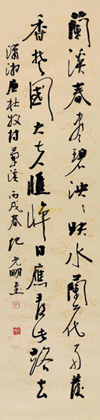 蘭溪春盡碧泱泱映水蘭花雨發
香楚國大夫憔悴日應尋此路去
瀟湘唐杜牧詩蘭溪丙戌春纪光明書